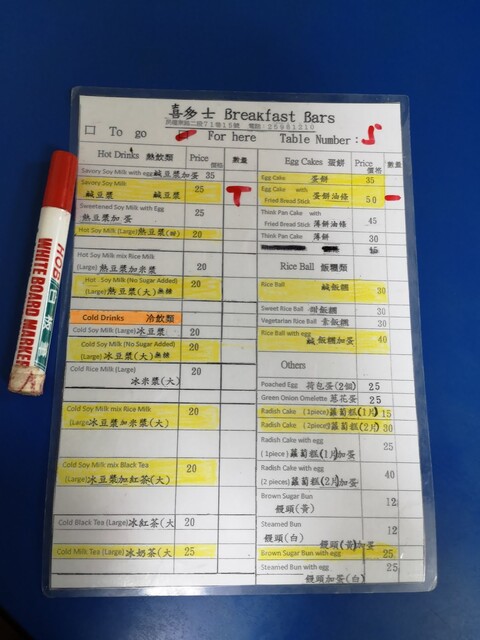 喜多士 Breakfast Bars
To go
For here
Table Number: 5
Hot Drinks 熱飲類 Price 價格 數量
Savory Soy Milk with egg 鹹豆漿加蛋 35
Savory Soy Milk 鹹豆漿 鹹豆漿 25 T
Sweetened Soy Milk with Egg 熱豆漿加蛋 25
Hot Soy Milk (Large) 熱豆漿(甜) 20
Hot Soy Milk mix Rice Milk (Large) 熱豆漿加米漿 20
Hot Soy Milk (No Sugar Added) (Large) 熱豆漿(大)無糖 20
Cold Drinks 冷飲類
Cold Soy Milk (Large) 冰豆漿 20
Cold Soy Milk (No Sugar Added) (Large) 冰豆漿(大)無糖 20
Cold Rice Milk (Large) 冰米漿(大) 20
Cold Soy Milk mix Rice Milk (Large) 冰豆漿加米漿(大) 20
Cold Soy Milk mix Black Tea (Large) 冰豆漿加紅茶(大) 20
Cold Black Tea (Large) 冰紅茶(大 20
Cold Milk Tea (Large) 冰奶茶(大) 25
Egg Cakes 蛋餅 Price 價格 數量
Egg Cake 蛋餅 35
Egg Cake with Fried Bread Stick 蛋餅油條 50 一
Think Pan Cake with Fried Bread Stick 薄餅油條 45
Think Pan Cake 薄餅 30
Rice Ball 飯糰類
Rice Ball 鹹飯糰 30
Sweet Rice Ball 甜飯糰 30
Vegetarian Rice Ball 素飯糰 30
Rice Ball with egg 鹹飯糰加蛋 40
Others
Poached Egg 荷包蛋(2個) 25
Green Onion Omelette 蔥花蛋 25
Radish Cake (1piece) 蘿蔔糕(1片) 15
Radish Cake (2pieces) 蘿蔔糕(2片) 30
Radish Cake with egg (1piece) 蘿蔔糕(1片)加蛋 25
Radish Cake with egg (2 pieces) 蘿蔔糕(2片)加蛋 40
Brown Sugar Bun 饅頭(黃) 12
Steamed Bun 饅頭(白) 12
Brown Sugar Bun with egg 饅頭(黃)加蛋 25
Steamed Bun with egg 饅頭加蛋(白) 25
HOB 白板筆
WHITE BOARD MARKER